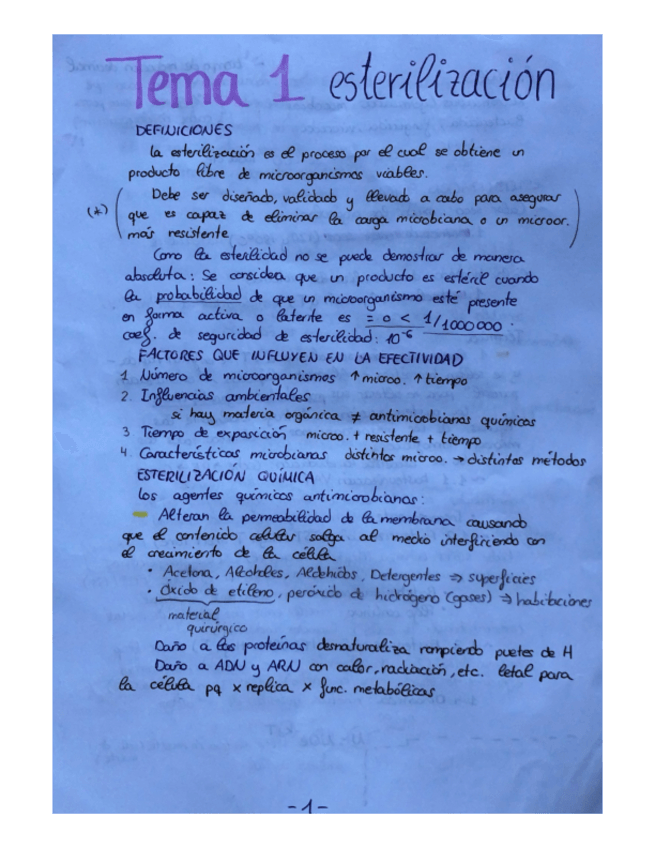 Tema 1 esterilización
DEFINICIONES
La esterilización es el proceso por el cual se obtiene un
producto libre de microorganismos viables.
Debe ser diseñado, validado y llevado a cabo para asegurar
(*) que es capaz de eliminar la carga microbiana o un microor.
más resistente
Como la esterilidad no se puede demostrar de manera
absoluta: Se considea que un producto es estéril cuando
la probabilidad de que un microorganismo esté presente
en forma activa o latente es = o < 1/1000000.
coef. de seguridad de esterilidad: 10⁻⁶
FACTORES QUE INFLUYEN EN LA EFECTIVIDAD
1. Número de microorganismos ↑microo. ↑tiempo
2. Influencias ambientales
si hay materia orgánica ≠ antimicrobianas químicos
3 Tiempo de exposición microo. + resistente + tiempo
4. Características microbianas distintos microo. → distintos métodos
ESTERILIZACIÓN QUÍMICA
Los agentes químicos antimicrobianas:
- Alteran la permeabilidad de la membrana causando
que el contenido celular salga al medio interfiriendo con
el crecimiento de la célula
· Acetona, Alcoholes, Aldehidos, Detergentes ⇒ superficies
· Óxido de etileno, peróxido de hidrógeno (gases) ⇒ habitaciones
material
quirúrgico
Daño a las proteínas desnaturaliza rompiendo puetes de H
Daño a ADN y ARN con calor, radiación, etc. letal para
la célula pq x replica x func. metabólicas
-1-